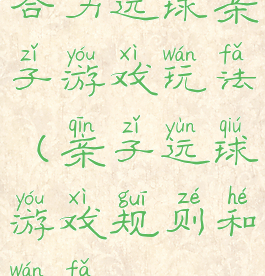 合力运球亲
zǐ yóu xì wán fǎ
子游戏玩法
qīn zǐ yùn qiú
（亲子运球
yóu xì guī zé hé
游戏规则和
wán fǎ